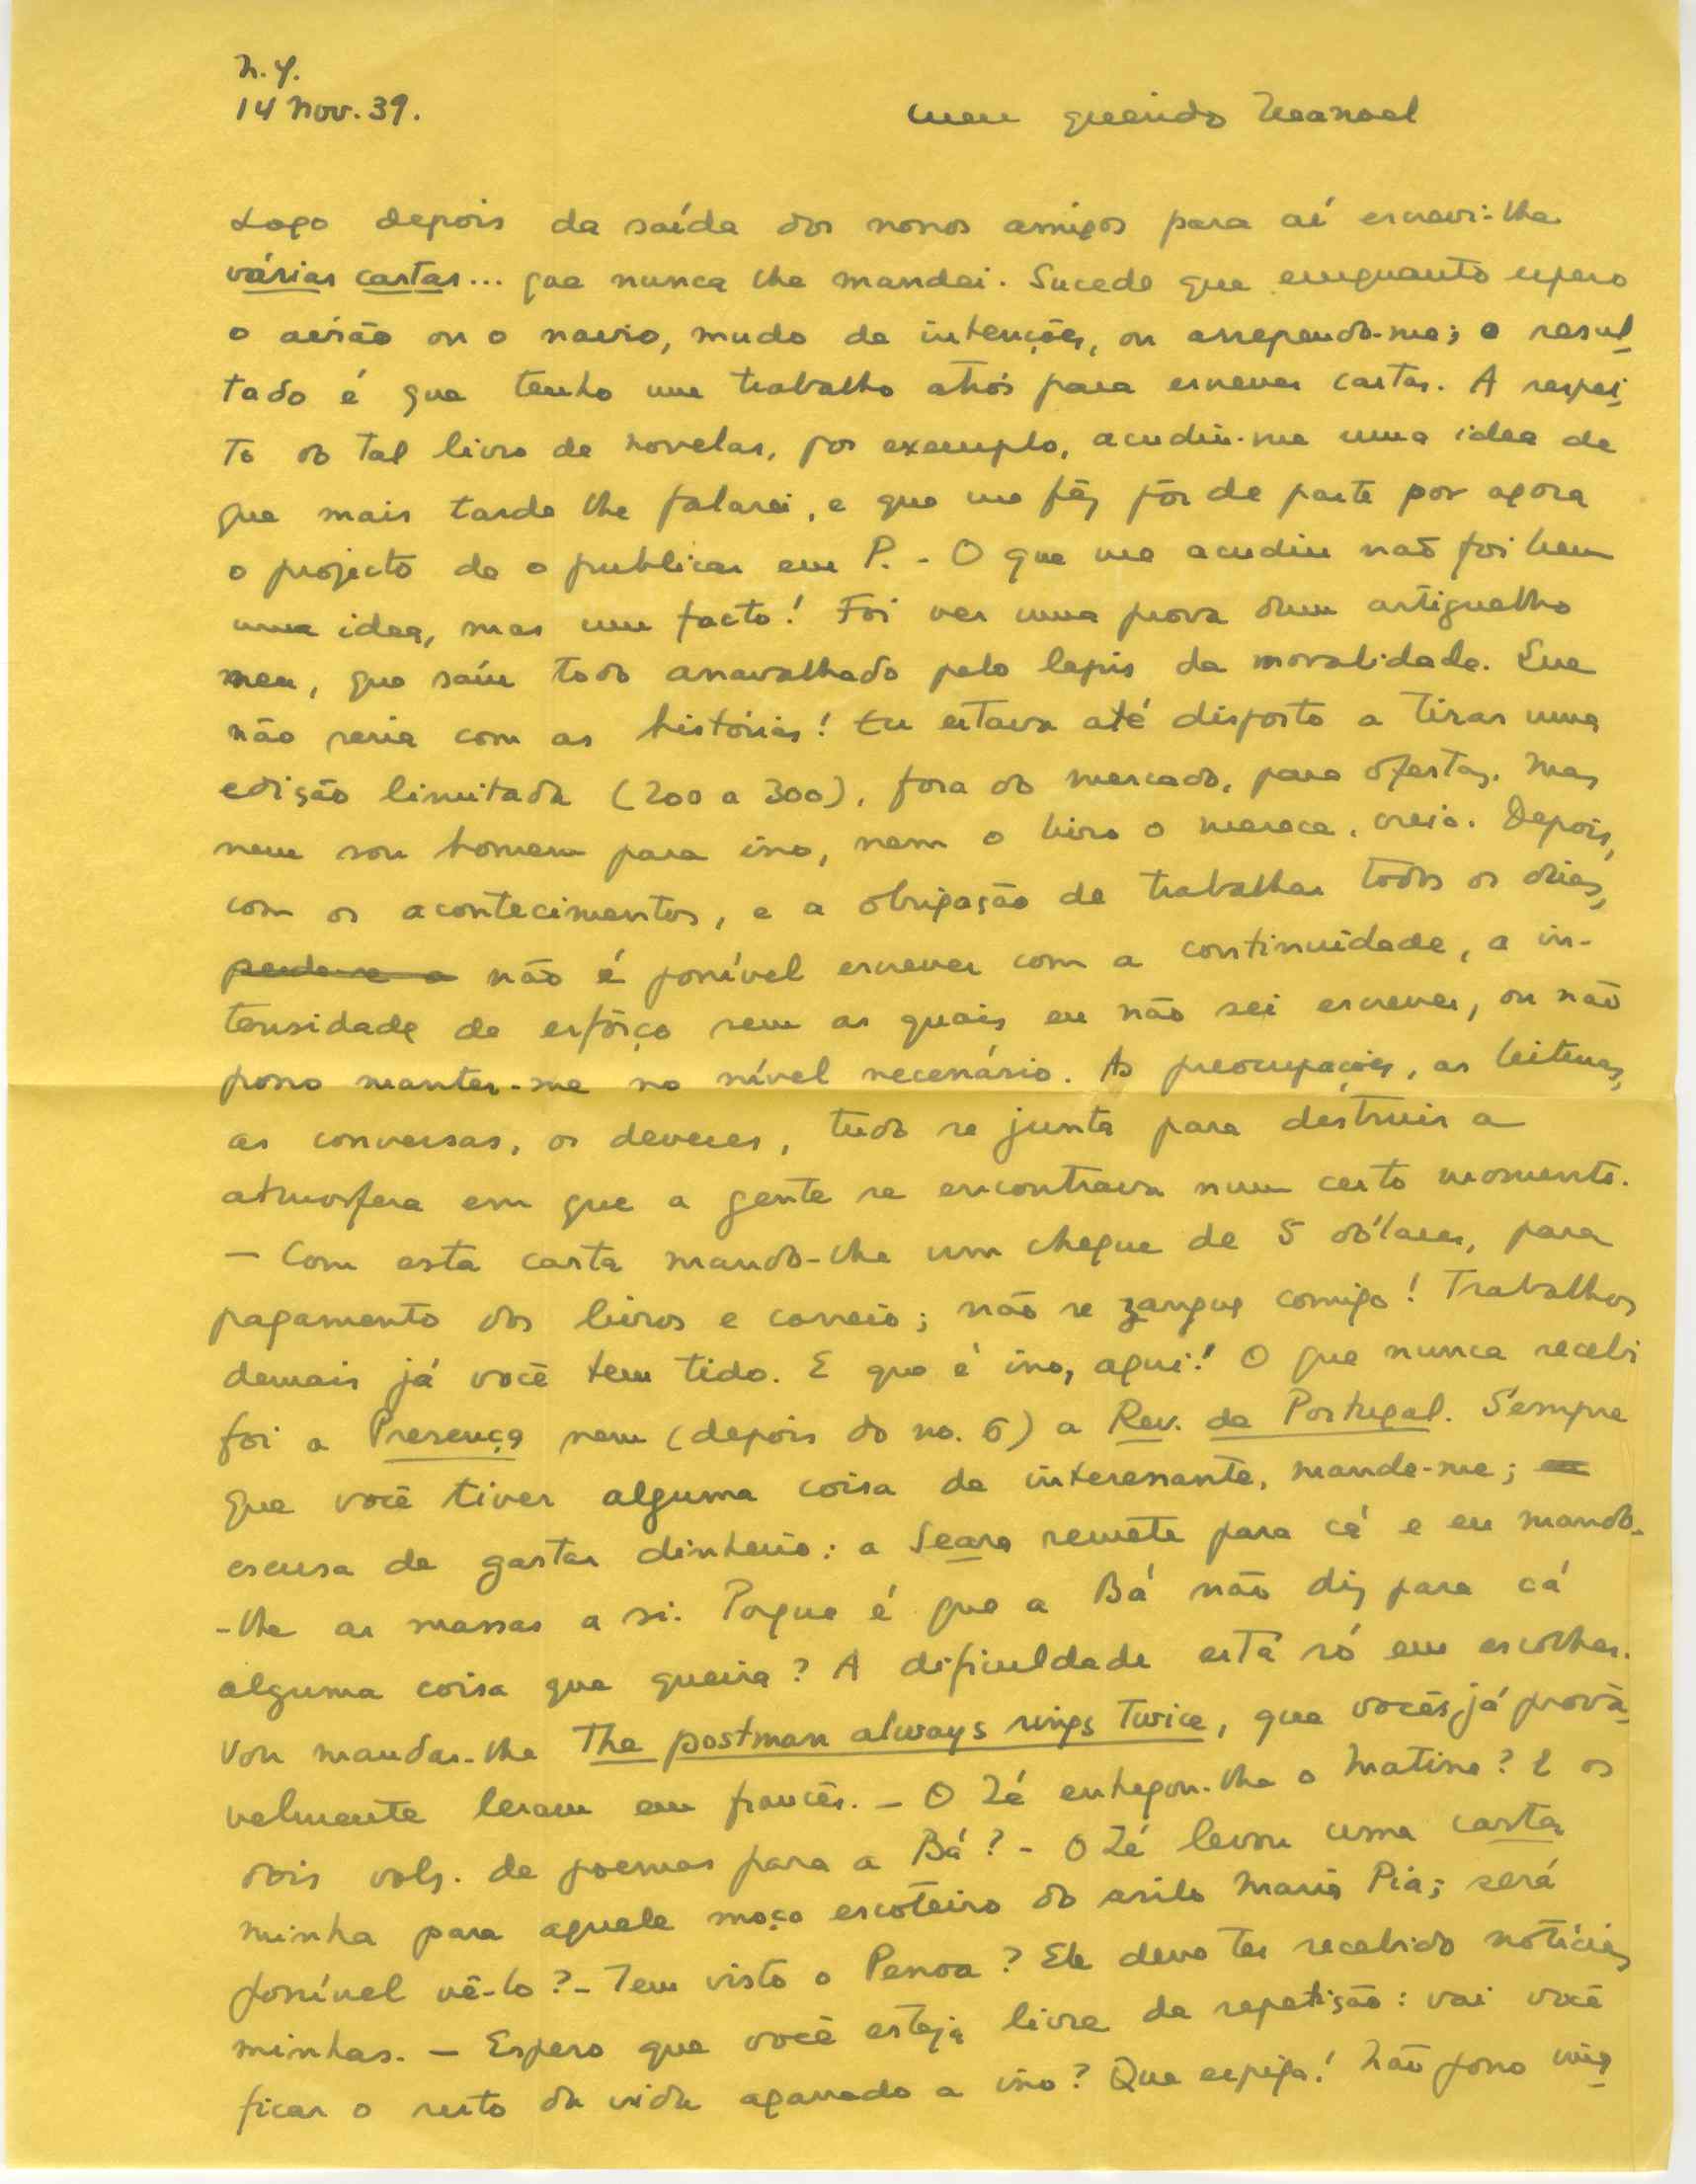 N.Y.
14 Nov. 39.
Meu querido Manoel
Logo depois da saída dos nossos amigos para aí escrevi-lhe
várias cartas... que nunca lhe mandei. Sucede que emquanto espero
o avião ou o navio, mudo de intenções, ou arrependo-me; o resul-
tado é que tenho um trabalho atrós para escrever cartas. A respei-
to do tal livro de novelas, por exemplo, acudiu-me uma idea de
que mais tarde lhe falarei, e que me fêz pôr de parte por agora
o projecto de o publicar em P. - O que me acudiu não foi bem
uma idea, mas um facto! Foi ver uma prova dum artiguelho
meu, que saíu todo anavalhado pelo lapis da moralidade. Que
não seria com as histórias! Eu estava até disposto a tirar uma
edição limitada (200 a 300), fora do mercado, para ofertas. Mas
nem sou homem para isso, nem o livro o merece, creio. Depois,
com os acontecimentos, e a obrigação de trabalhar todos os dias,
não é possível escrever com a continuidade, a in-
tensidade de esfôrço sem as quais eu não sei escrever, ou não
posso manter-me no nível necessário. As preocupações, as leituras,
as conversas, os deveres, tudo se junta para destruir a
atmosfera em que a gente se encontrava num certo momento.
— Com esta carta mando-lhe um cheque de 5 dólares, para
pagamento dos livros e correio; não se zangue comigo! Trabalhos
demais já você tem tido. E que é isso, aqui! O que nunca recebi
foi a Presença nem (depois do no. 6) a Rev. de Portugal. Sempre
que você tiver alguma coisa de interessante, mande-me;
escusa de gastar dinheiro: a Seara remete para cá e eu mando-
-lhe as massas a si. Porque é que a Bá não diz para cá
alguma coisa que queira? A dificuldade está só em escolher.
Vou mandar-lhe The postman always rings twice, que vocês já prová-
velmente leram em francês. — O Zé entregou-lhe o Matisse? E os
dois vols. de poemas para a Bá? - O Zé levou uma carta
minha para aquele moço escoteiro do asilo Maria Pia; será
possível vê-lo? - Tem visto o Pessoa? Ele deve ter recebido notícias
minhas. — Espero que você esteja livre da repetição: vai você
ficar o resto da vida agarrado a isso? Que espiga! Não posso